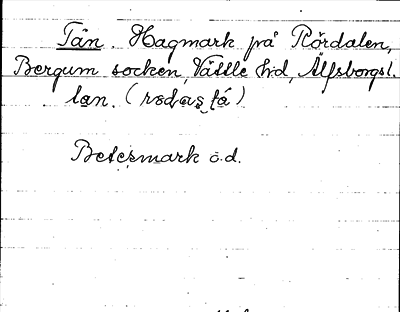 Tån. Hagmark på Rördalen,
Bergum socken, Vättle hd, Älfsborgs l.
lan. (rødas tå)
Betesmark ö.d.